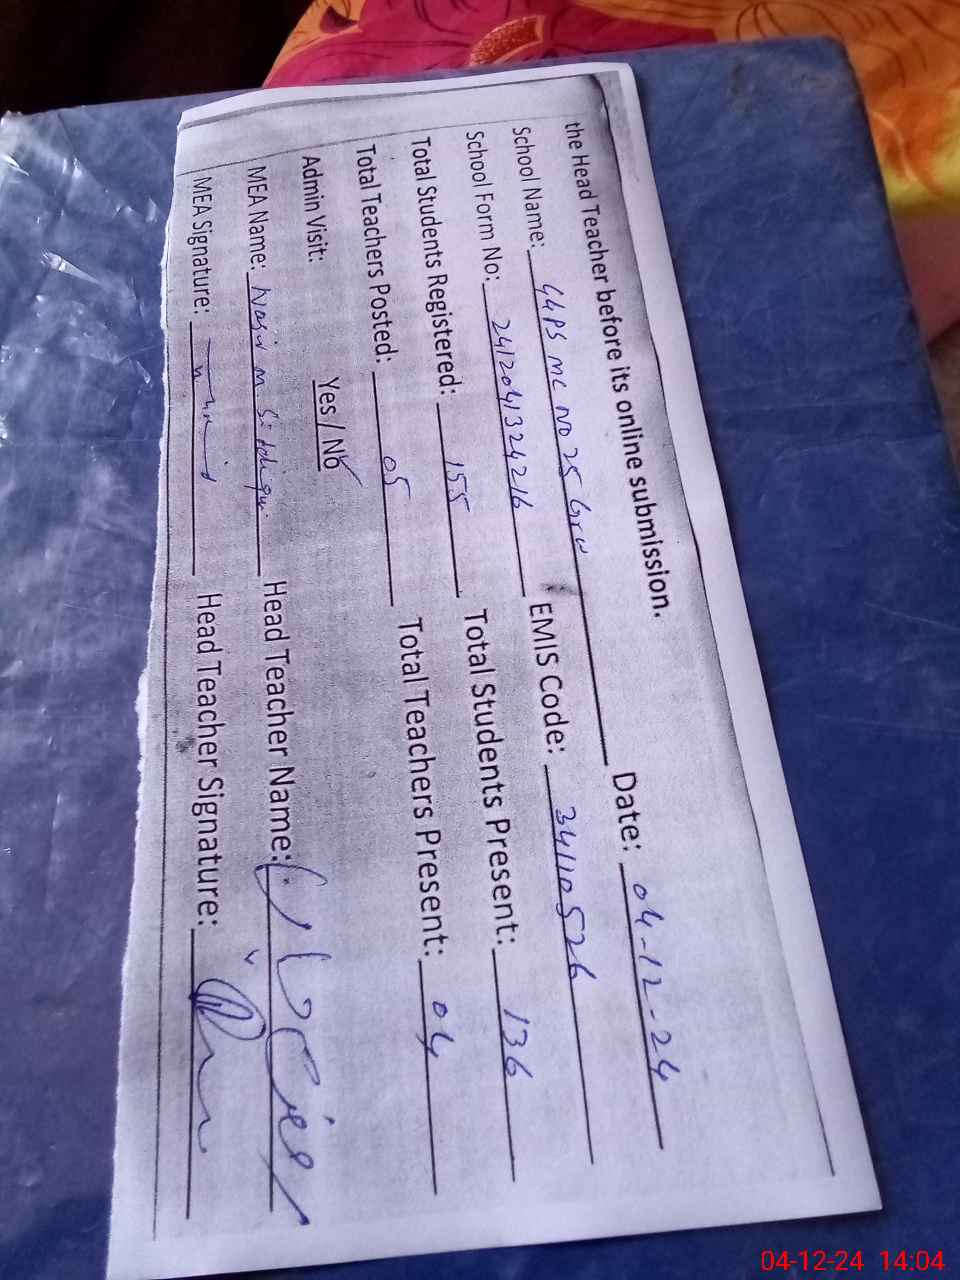 the Head Teacher before its online submission.
School Name: GGPS MC NO 25 Grw Date: 04-12-24
School Form No: 2412041324216 EMIS Code: 34110526
Total Students Registered: 155 Total Students Present: 136
Total Teachers Posted: 05 Total Teachers Present: 04
Admin Visit: Yes / No
MEA Name: Nasir M Siddiqui Head Teacher Name:
MEA Signature: Head Teacher Signature:
04-12-24 14:04